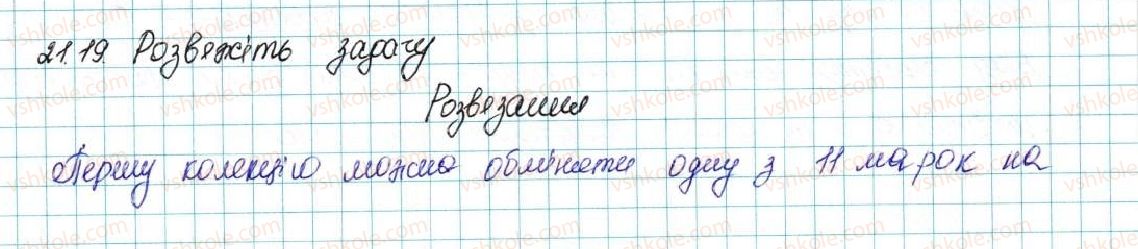 21.19. Розвяжіть задачу
Розвязання
Першу колекцію можно обміняти одну з 11 марок на